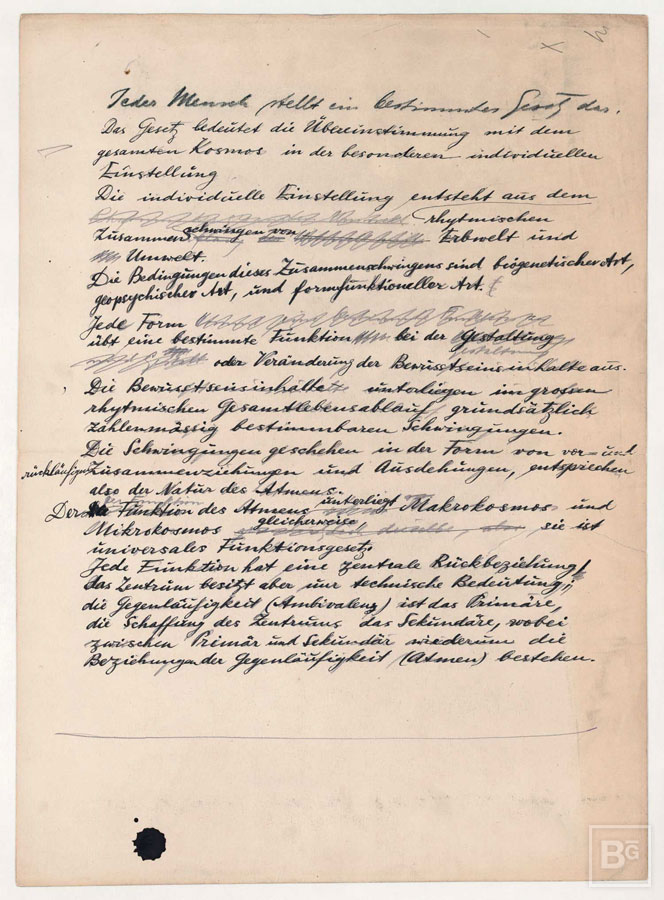 Jeder Mensch stellt ein bestimmtes Gesetz dar.
Das Gesetz bedeutet die Übereinstimmung mit dem
gesamten Kosmos in der besonderen individuellen
Einstellung
Die individuelle Einstellung entsteht aus dem
rhytmischen
Zusammenschwingen von Erbwelt und
Umwelt.
Die Bedingungen dieses Zusammenschwingens sind biogenetischer Art,
geopsychischer Art, und formfunktioneller Art.
Jede Form
übt eine bestimmte Funktion bei der Gestaltung
oder Veränderung der Bewusstseinsinhalte aus.
Die Bewusstseinsinhalte unterliegen im grossen
rhytmischen Gesamtlebensablauf grundsätzlich
zahlenmässig bestimmbaren Schwingungen.
Die Schwingungen geschehen in der Form von vor= und
rückläufigen Zusammenziehungen und Ausdehungen, entsprechen
also der Natur des Atmens.
Der Funktion des Atmens unterliegt Makrokosmos und
Mikrokosmos gleicherweise, sie ist
universales Funktionsgesetz.
Jede Funktion hat eine zentrale Rückbeziehung!
das Zentrum besitzt aber nur technische Bedeutung;
die Gegenläufigkeit (Ambivalenz) ist das Primäre,
die Schaffung des Zentrums das Sekundäre, wobei
zwischen Primär und Sekundär wiederum die
Beziehungen der Gegenläufigkeit (Atmen) bestehen.
BG